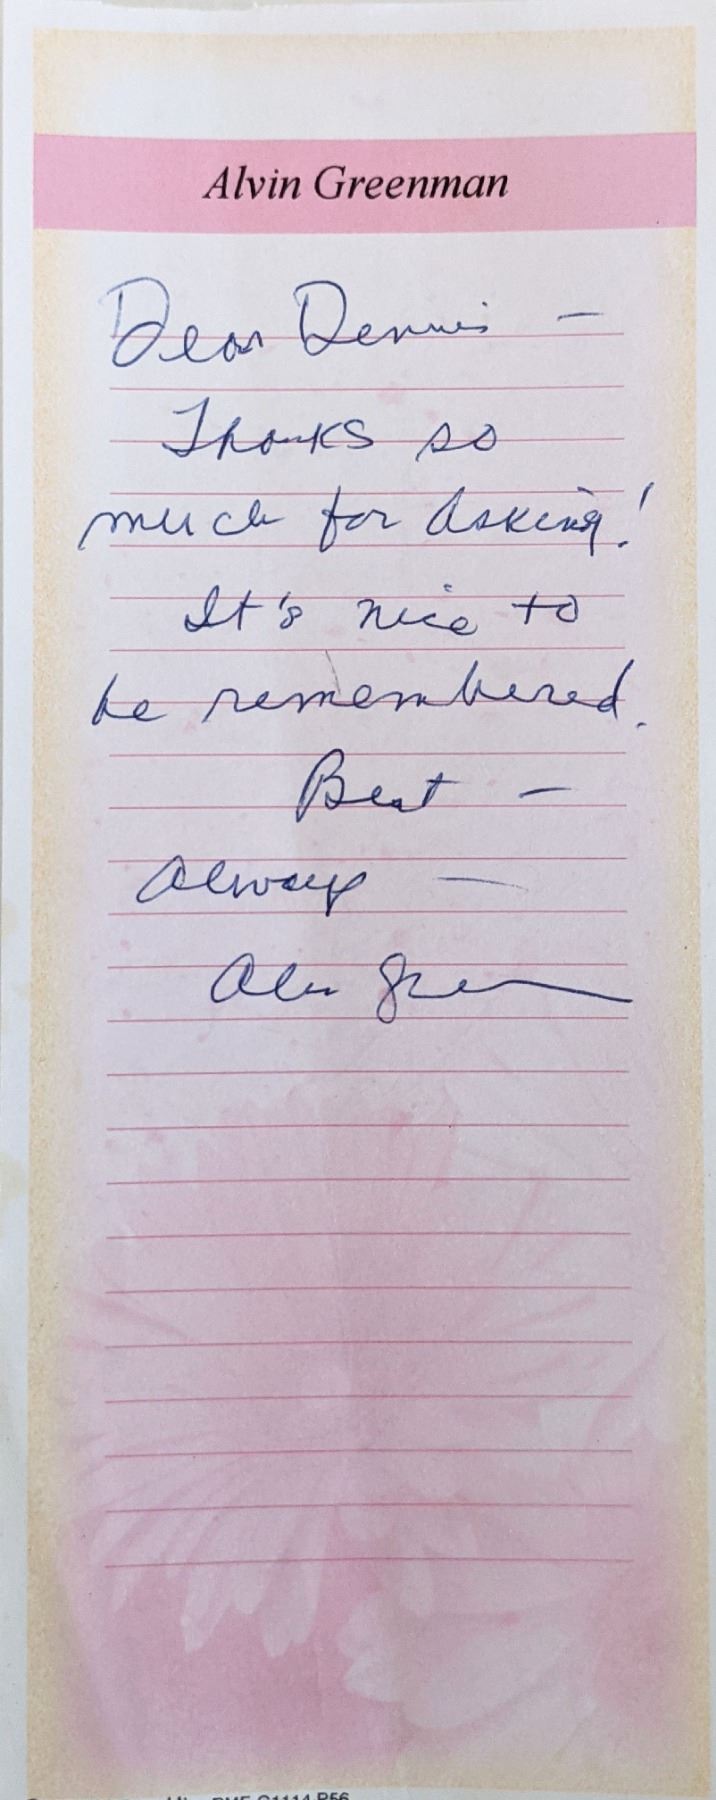 Alvin Greenman
Dear Dennis –
Thanks so
much for asking!
It's nice to
be remembered.
Best –
always –
Alvin Green